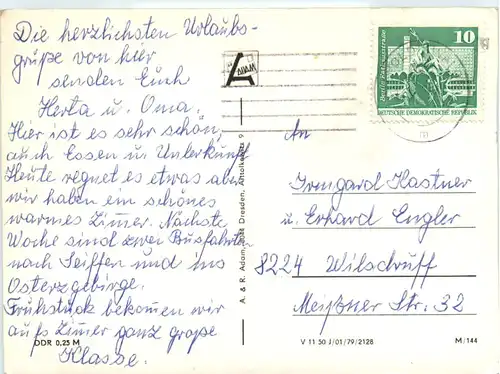 Die herzlichsten Urlaubs-
grüße von hier
senden Euch
Herta u. Oma.
Hier ist es sehr schön,
auch Essen u. Unterkunft
Heute regnet es etwas aber
wir haben ein schönes
warmes Zimer. Nächste
Woche sind zwei Busfahrten
nach Seiffen und ins
Osterzgebirge.
Frühstück bekomen wir
aufs Zimer ganz große
Klasse.
DDR 0,25 M
ADAM
A. & R. Adam, Dresden,
10
DEUTSCHE DEMOKRATISCHE REPUBLIK
An
Irmgard Kastner
u. Erhard Engler
8224 Wilsdruff
Meißner Str. 32
V 11 50 J/01/79/2128
M/144